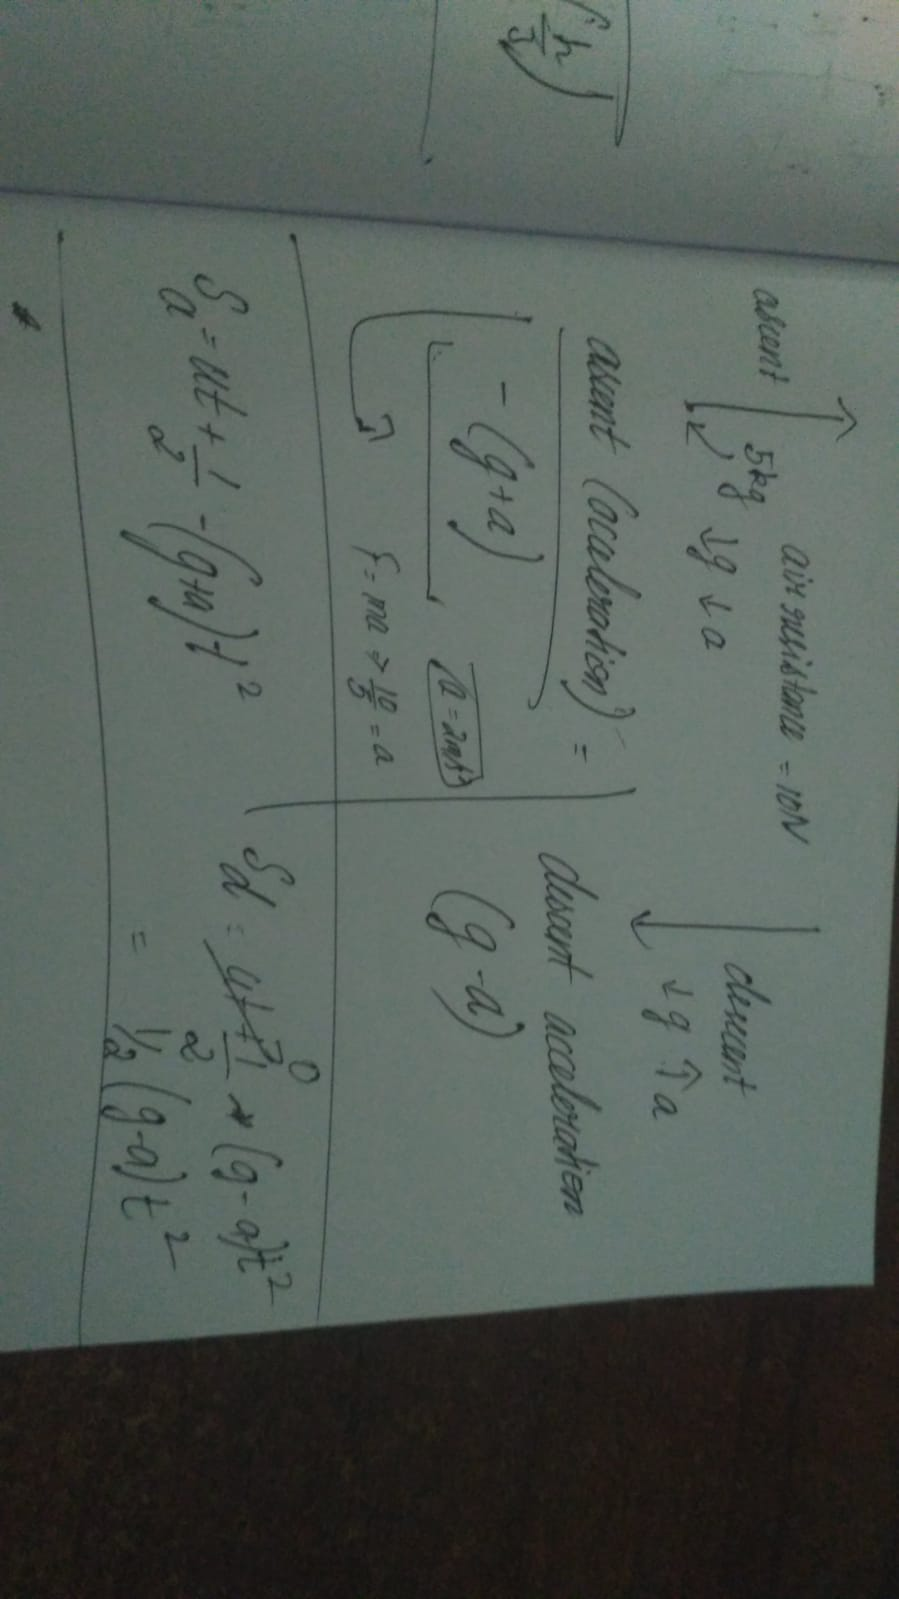 (h/3)
air resistance = 10N
ascent 5kg ↓g ↓a
descent ↓g ↑a
ascent (acceleration) =
- (g+a)
a = 2m/s²
f = ma ⇒ 10/5 = a
descent acceleration
(g - a)
Sa = ut + 1/2 - (g+a) t²
Sd = ut + 1/2 * (g - a)t²
0
= 1/2 (g-a)t²